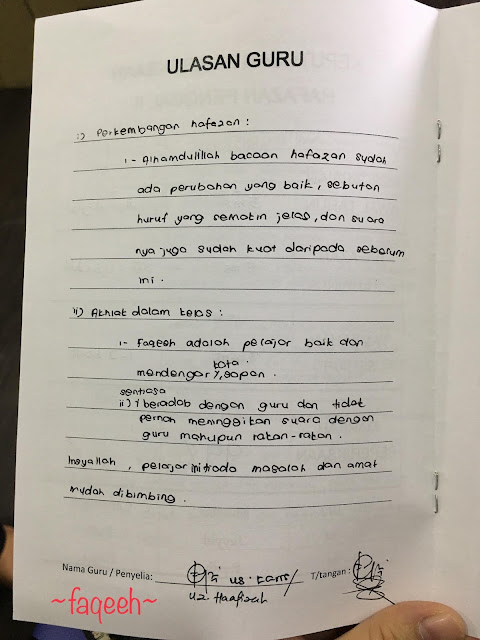 ULASAN GURU
i) Perkembangan hafazan :
i- Alhamdulillah bacaan hafazan sudah
ada perubahan yang baik, sebutan
huruf yang semakin jelas, dan suara
nya juga sudah kuat daripada sebelum
ini.
ii) Akhlak dalam kelas :
i- Faqeeh adalah pelajar baik dan
kata
mendengar Y, sopan.
sentiasa
ii) Y beradab dengan guru dan tidak
pernah meninggikan suara dengan
guru mahupun rakan-rakan.
Insyallah, pelajar ini tiada masalah dan amat
mudah dibimbing.
Nama Guru / Penyelia: T/tangan :
Uz Haafizah
~faqeeh~